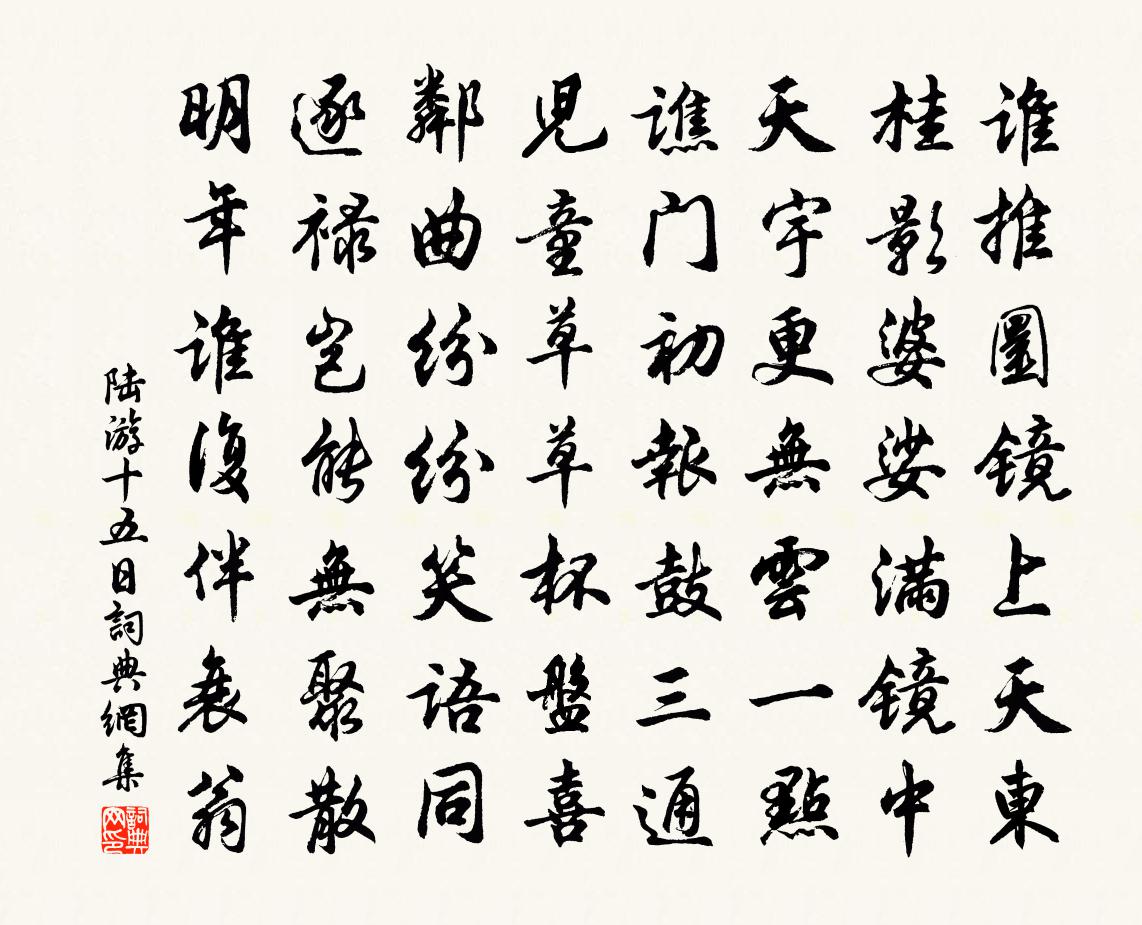 谁推圓镜上天東
桂影婆娑满镜中
天宇更無雲一點
譙门初報鼓三通
児童草草杯盤喜
鄰曲纷纷笑语同
逐禄岂能無聚散
明年谁復伴衰翁
陆游十五日詞典網集
詞典网印